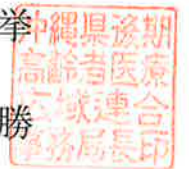 挙
沖縄県後期
高齢者医療
広域連合
事務局長印
勝